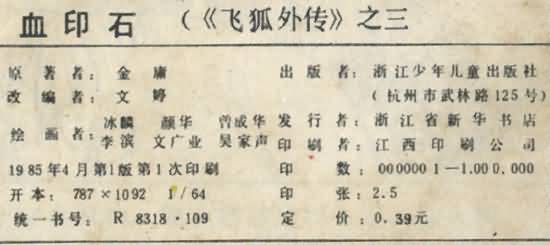 血印石 (《飞狐外传》之三
原著者：金庸 出版者：浙江少年儿童出版社
改编者：文婷 (杭州市武林路125号)
绘画者：冰麟 颜华 曾成华 发行者：浙江省新华书店
李滨 文广业 吴家声 印刷者：江西印刷公司
1985年4月第1版第1次印刷 印数：0000001—1.000.000
开本：787×1092 1/64 印张：2.5
统一书号：R 8318·109 定价：0.39元